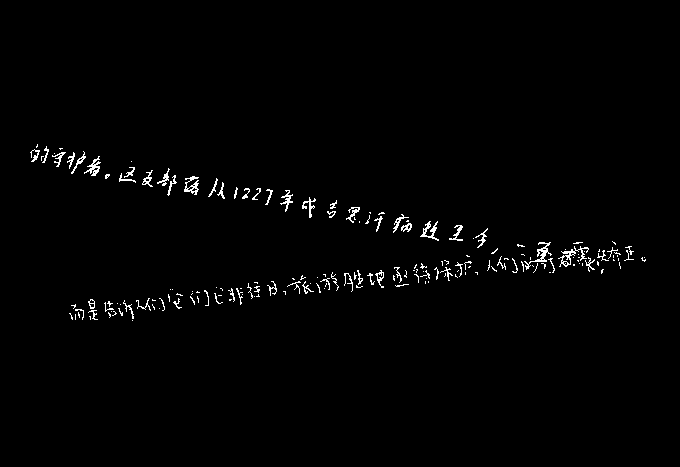 的守护者。这支部落从1227年成吉思汗病逝至今,一
而是告诉人们它们已非往日,旅游胜地亟待保护,人们的需求矫正。